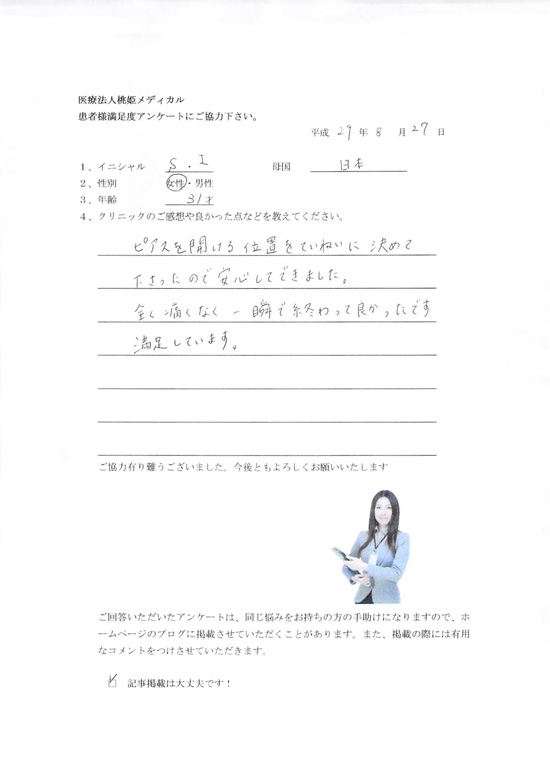 医療法人桃姫メディカル
患者様満足度アンケートにご協力下さい。
平成 29 年 8 月 27 日
1、イニシャル S . I 母国 日本
2、性別 女性・男性
3、年齢 31才
4、クリニックのご感想や良かった点などを教えてください。
ピアスを開ける位置をていねいに決めて
下さったので安心してできました。
全く痛くなく一瞬で終わって良かったです
満足しています。
ご協力有り難うございました。今後ともよろしくお願いいたします
ご回答いただいたアンケートは、同じ悩みをお持ちの方の手助けになりますので、ホ
ームページのブログに掲載させていただくことがあります。また、掲載の際には有用
なコメントをつけさせていただきます。
☑ 記事掲載は大丈夫です！